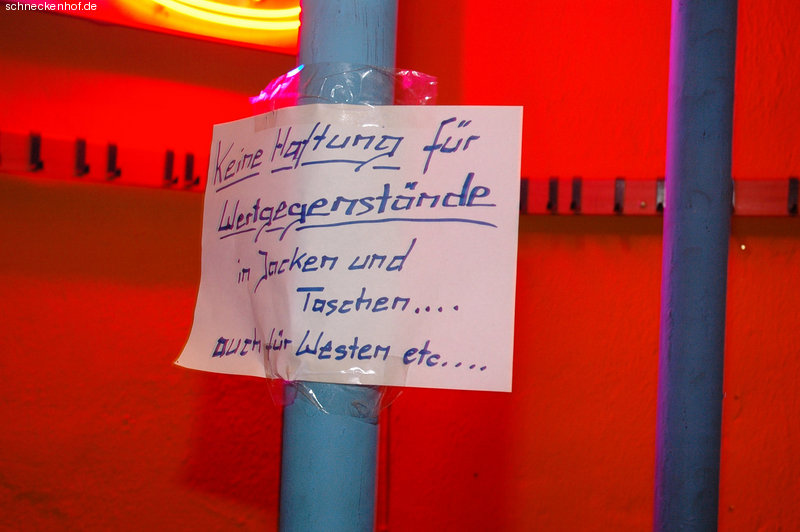 schneckenhof.de
Keine Haftung für
Wertgegenstände
in Jacken und
Taschen....
auch für Westen etc....